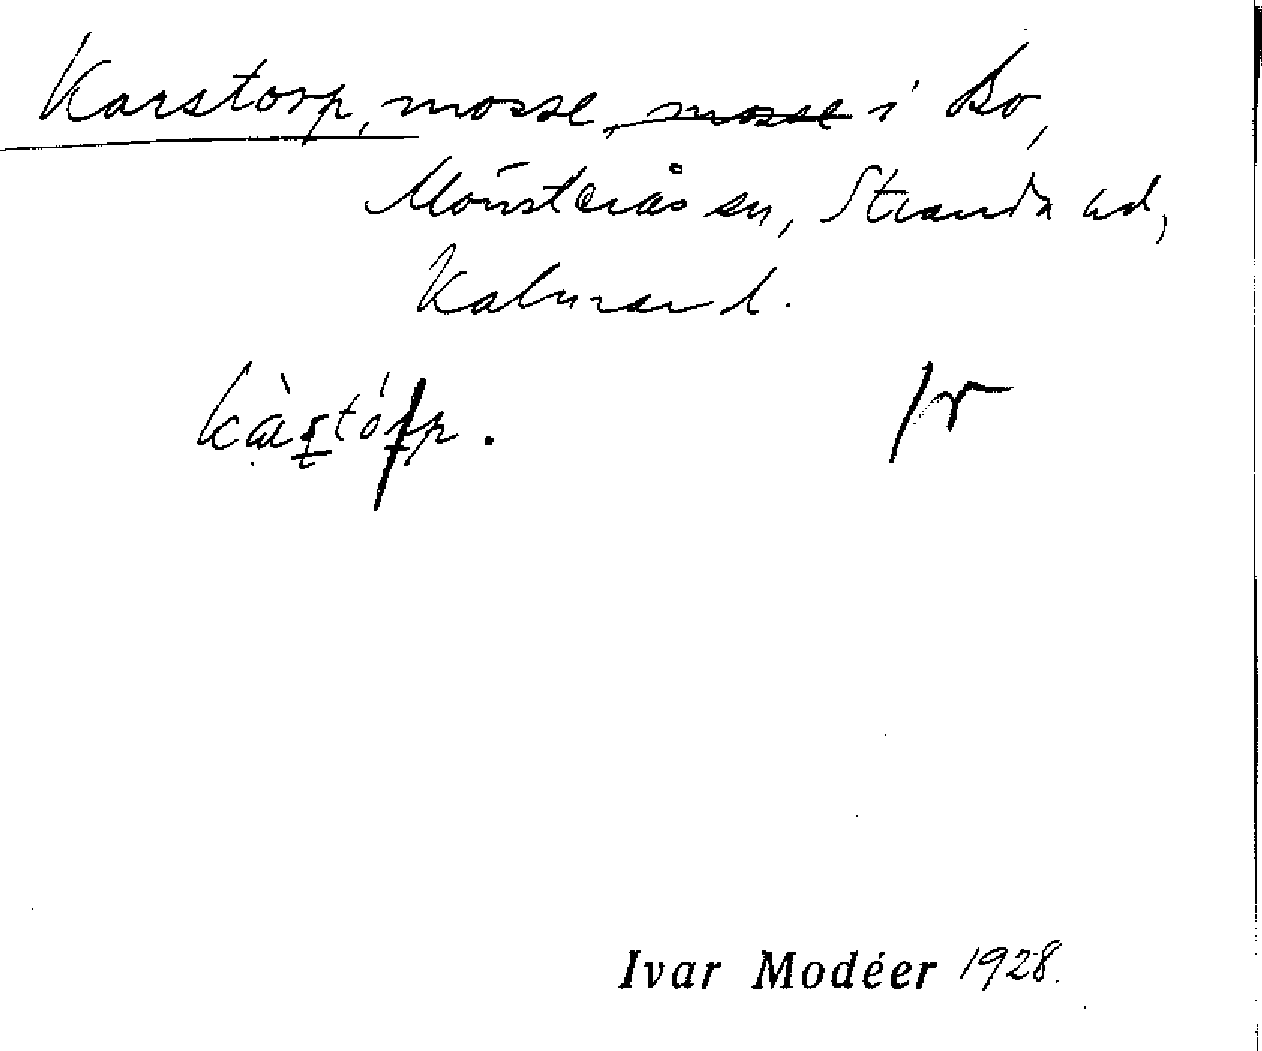 Karstorp, mosse, ~~mosse~~ i Bo,
Mönsterås sn, Stranda hd,
Kalmar l.
Ivar Modéer 1928.